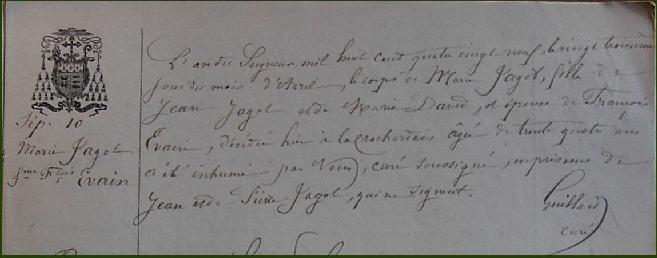 Sép. 10
Marie Jagot
fme Fçois Evain
L'an du Seigneur mil huit cent quatre vingt neuf, le vingt troisième
jour du mois d'Avril, le corps de Marie Jagot, fille de
Jean Jagot et de Marie David, et épouse de François
Evain, décédée hier à la âgée de trente quatre ans
a été inhumé par Nous, curé soussigné, en présence de
Jean et de Pierre Jagot, qui ne signent.
Guillard
curé